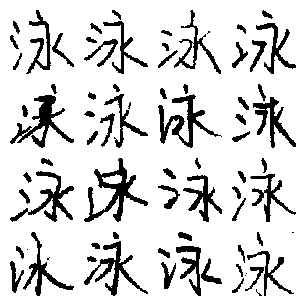 泳泳泳泳
泳泳泳泳
泳泳泳泳
泳泳泳泳